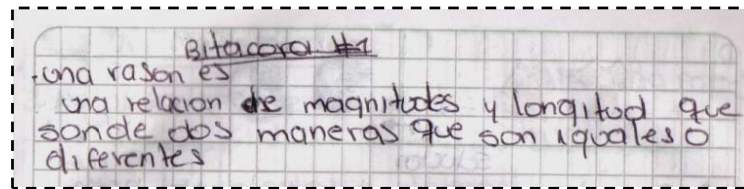 Bitacora #1
. una rason es
una relacion de magnitudes y longitud que
sonde dos maneras que son iguales o
diferentes